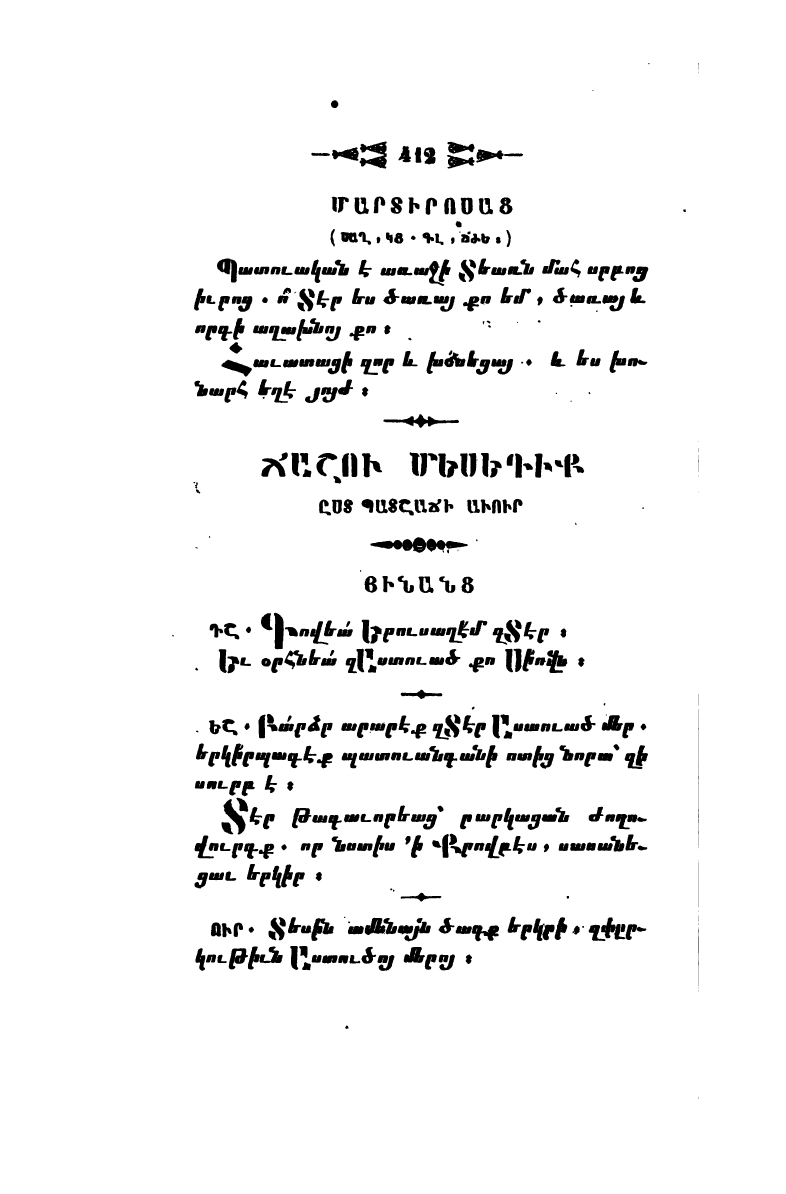 412
ՄԱՐՏԻՐՈՍԱՑ
(ԾԱՂ, ԿՑ. ԳԼ, ՃԺԵ։)
Պատուական է առաջի Տեառն մահ սրբոց
իւրոց. ո՛ Տէր ես ծառայ քո եմ, ծառայ և
որդի աղախնոյ քո։
Հաւատացի զոր և խօսեցայ. և ես խո-
նարհ եղէ յոյժ։
ՃԱՇՈՒ ՄԵՍԵԴԻՔ
ԸՍՏ ՊԱՏՇԱՃԻ ԱՒՈՒՐ
ՅԻՆԱՆՑ
ԴՇ. Գովեա՛ Երուսաղէմ զՏէր։
Եւ օրհնեա՛ զԱստուած քո Սիովն։
ԵՇ. Բա՛րձր արարէք զՏէր Աստուած մեր.
երկիրպագէք պատուանդանի ոտից նորա՝ զի
սուրբ է։
Տէր թագաւորեաց՝ բարկացան ժողո-
վուրդք. որ նստիս ՚ի Քրովբէս, սասանե-
ցաւ երկիր։
ՈՒՐ. Տեսին ամենայն ծագք երկրի, զփըր-
կութիւն Աստուծոյ մերոյ։